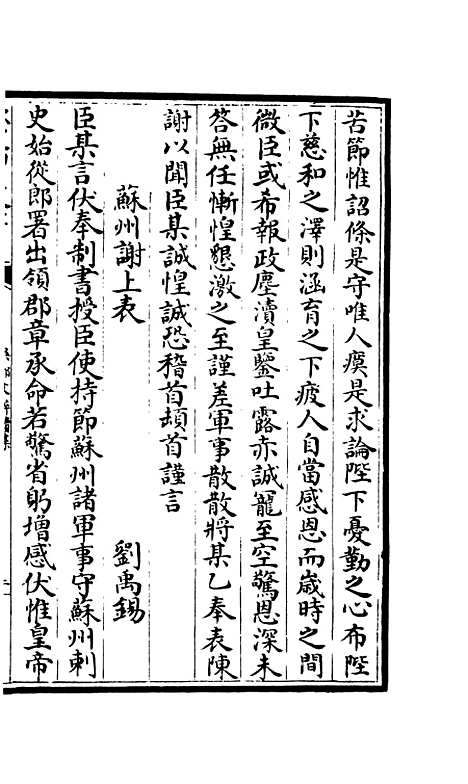 苦節惟詔條是守唯人瘼是求論陛下憂勤之心布陛
下慈和之澤則涵育之下疲人自當感恩而歲時之間
微臣或希報政塵瀆皇鑒吐露赤誠寵至空驚恩深未
答無任慚惶懇激之至謹差軍事散散將某乙奉表陳
謝以聞臣某誠惶誠恐稽首頓首謹言
蘇州謝上表 劉禹錫
臣某言伏奉制書授臣使持節蘇州諸軍事守蘇州刺
史始從郎署出領郡章承命若驚省躬增感伏惟皇帝